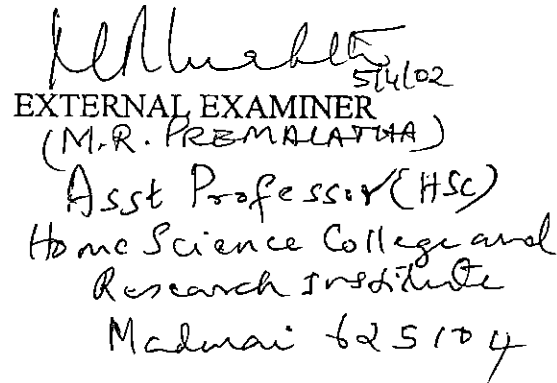 5/4/02
EXTERNAL EXAMINER
(M.R. PREMALATHA)
Asst Professor (HSc)
Home Science College and
Research Institute
Madurai 625104